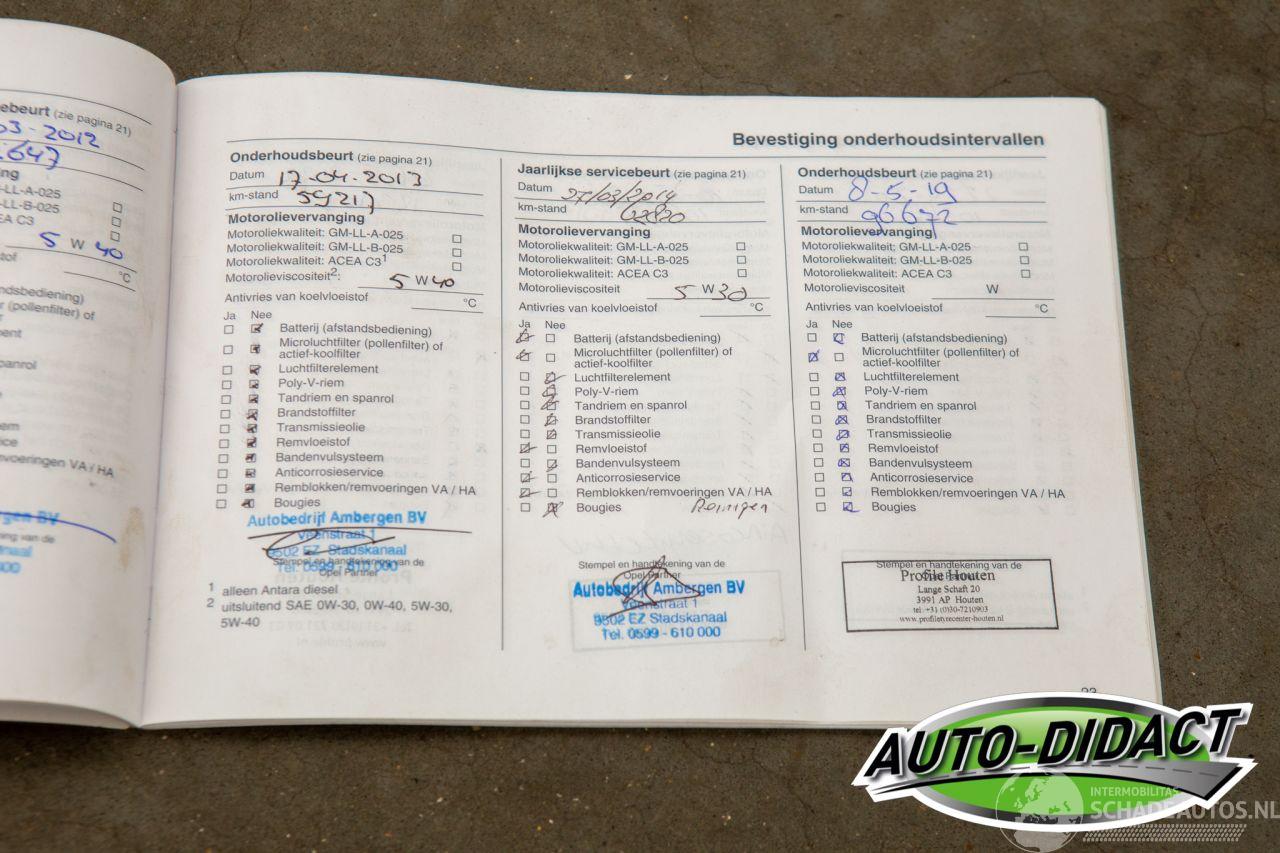 cebeurt (zie pagina 21)
03-2012
.647
ning
M-LL-A-025
-LL-B-025
CEA C3
5 W 40
stof
°C
ndsbediening)
(pollenfilter) of
ment
panrol
em
ice
voeringen VA / HA
Bevestiging onderhoudsintervallen
Onderhoudsbeurt (zie pagina 21)
Datum 17-04-2013
km-stand 59217
Motorolievervanging
Motoroliekwaliteit: GM-LL-A-025
Motoroliekwaliteit: GM-LL-B-025
Motoroliekwaliteit: ACEA C3¹
Motorolieviscositeit²: 5 W 40
Antivries van koelvloeistof °C
Ja Nee
Batterij (afstandsbediening)
Microluchtfilter (pollenfilter) of
actief-koolfilter
Luchtfilterelement
Poly-V-riem
Tandriem en spanrol
Brandstoffilter
Transmissieolie
Remvloeistof
Bandenvulsysteem
Anticorrosieservice
Remblokken/remvoeringen VA / HA
Bougies
Autobedrijf Ambergen BV
Veenstraat 1
9502 EZ Stadskanaal
Stempel en handtekening van de
Tel. 0599 - 610 000
1 alleen Antara diesel
2 uitsluitend SAE 0W-30, 0W-40, 5W-30,
5W-40
Jaarlijkse servicebeurt (zie pagina 21)
Datum 27/03/2014
km-stand 62820
Motorolievervanging
Motoroliekwaliteit: GM-LL-A-025
Motoroliekwaliteit: GM-LL-B-025
Motoroliekwaliteit: ACEA C3
Motorolieviscositeit 5 W 30
Antivries van koelvloeistof °C
Ja Nee
Batterij (afstandsbediening)
Microluchtfilter (pollenfilter) of
actief-koolfilter
Luchtfilterelement
Poly-V-riem
Tandriem en spanrol
Brandstoffilter
Transmissieolie
Remvloeistof
Bandenvulsysteem
Anticorrosieservice
Remblokken/remvoeringen VA / HA
Bougies Reinigen
Stempel en handtekening van de
Opel Partner
Autobedrijf Ambergen BV
Veenstraat 1
9502 EZ Stadskanaal
Tel. 0599 - 610 000
Onderhoudsbeurt (zie pagina 21)
Datum 8-5-19
km-stand 96672
Motorolievervanging
Motoroliekwaliteit: GM-LL-A-025
Motoroliekwaliteit: GM-LL-B-025
Motoroliekwaliteit: ACEA C3
Motorolieviscositeit W
Antivries van koelvloeistof °C
Ja Nee
Batterij (afstandsbediening)
Microluchtfilter (pollenfilter) of
actief-koolfilter
Luchtfilterelement
Poly-V-riem
Tandriem en spanrol
Brandstoffilter
Transmissieolie
Remvloeistof
Bandenvulsysteem
Anticorrosieservice
Remblokken/remvoeringen VA / HA
Bougies
Stempel en handtekening van de
Profile Houten
Lange Schaft 20
3991 AP Houten
tel: +31 (0)30-7210903
www.profiletyrecenter-houten.nl
AUTO-DIDACT
INTERMOBILITAS
SCHADEAUTOS.NL